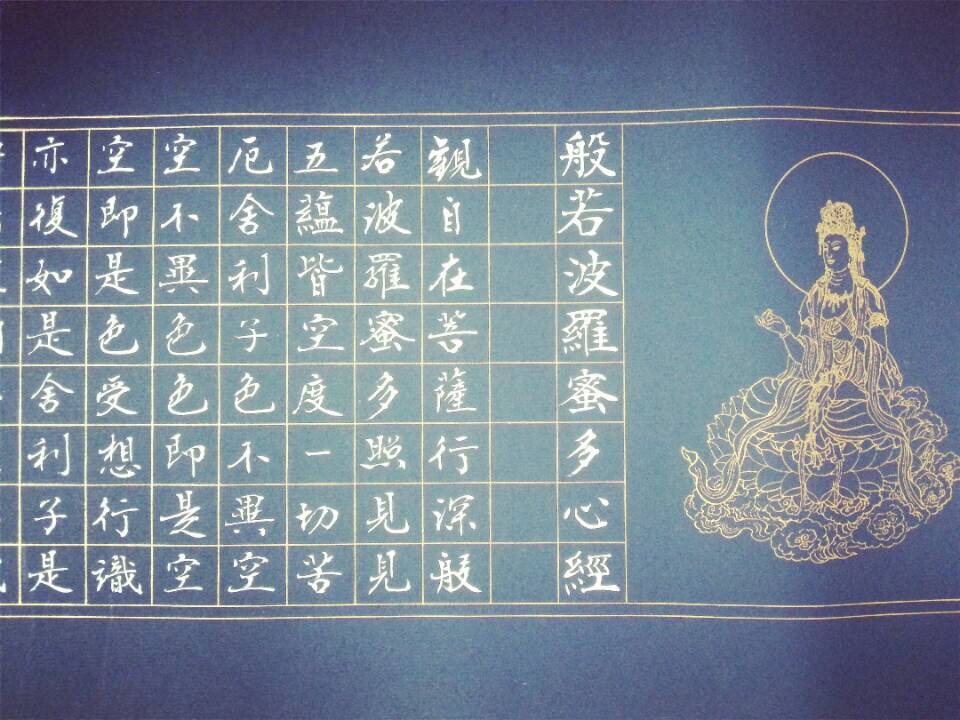 般若波羅蜜多心經
觀自在菩薩行深般
若波羅蜜多照見見
五蘊皆空度一切苦
厄舍利子色不異空
空不異色色即是空
空即是色受想行識
亦復如是舍利子是